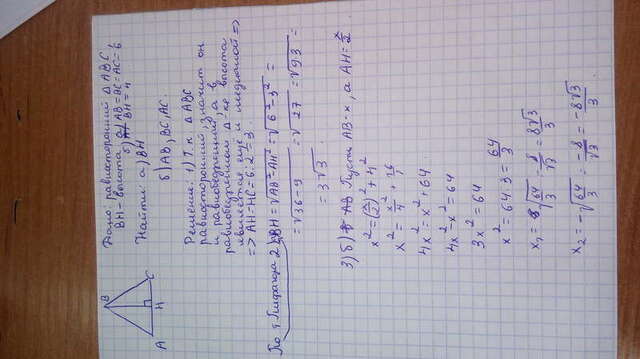 B
A H C
Дано: равносторонний Δ ABC,
BH - высота, а) AB=BC=AC=6
б) BH = 4
Найти: а) BH
б) AB, BC, AC.
Решение: 1) Т.к. Δ ABC
равносторонний, значит он
и равнобедренный, а в
равнобедренном Δ-ке высота
является ещё и медианой =>
=> AH=HC=6:2=3.
По т. Пифагора 2) BH = √AB²-AH² = √6²-3² =
= √36-9 = √27 = √9·3 =
= 3√3.
3) б) Пусть AB=x, а AH= x/2
x² = (x/2)² + 4²
x² = x²/4 + 16/1
4x² = x² + 64
4x² - x² = 64
3x² = 64
x² = 64:3 = 64/3
x₁ = √64/3 = 8/√3 = 8√3/3
x₂ = -√64/3 = -8/√3 = -8√3/3.